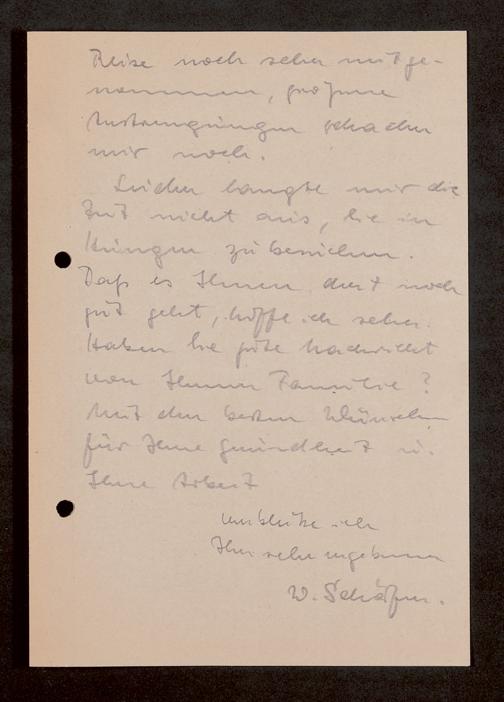 Reise noch sehr mitge-
nommen, größere
Anstrengungen schaden
mir noch.
Leider langte mir die
Zeit nicht aus, Sie in
zu besuchen.
Daß es Ihnen dort noch
gut geht, hoffe ich sehr.
Haben Sie gute Nachricht
von Ihrer Familie?
Mit den besten Wünschen
für Ihre Gesundheit u.
Ihre Arbeit
verbleibe ich
Ihr sehr ergebener
W. Schäfer.